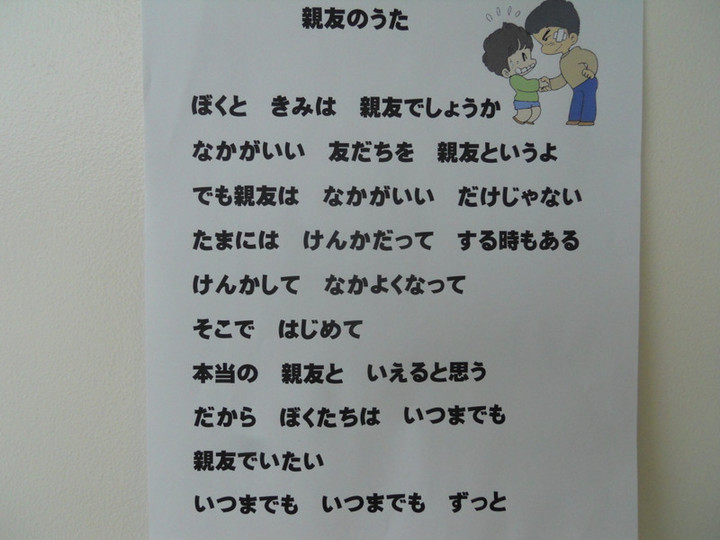 親友のうた
ぼくと　きみは　親友でしょうか
なかがいい　友だちを　親友というよ
でも親友は　なかがいい　だけじゃない
たまには　けんかだって　する時もある
けんかして　なかよくなって
そこで　はじめて
本当の　親友と　いえると思う
だから　ぼくたちは　いつまでも
親友でいたい
いつまでも　いつまでも　ずっと